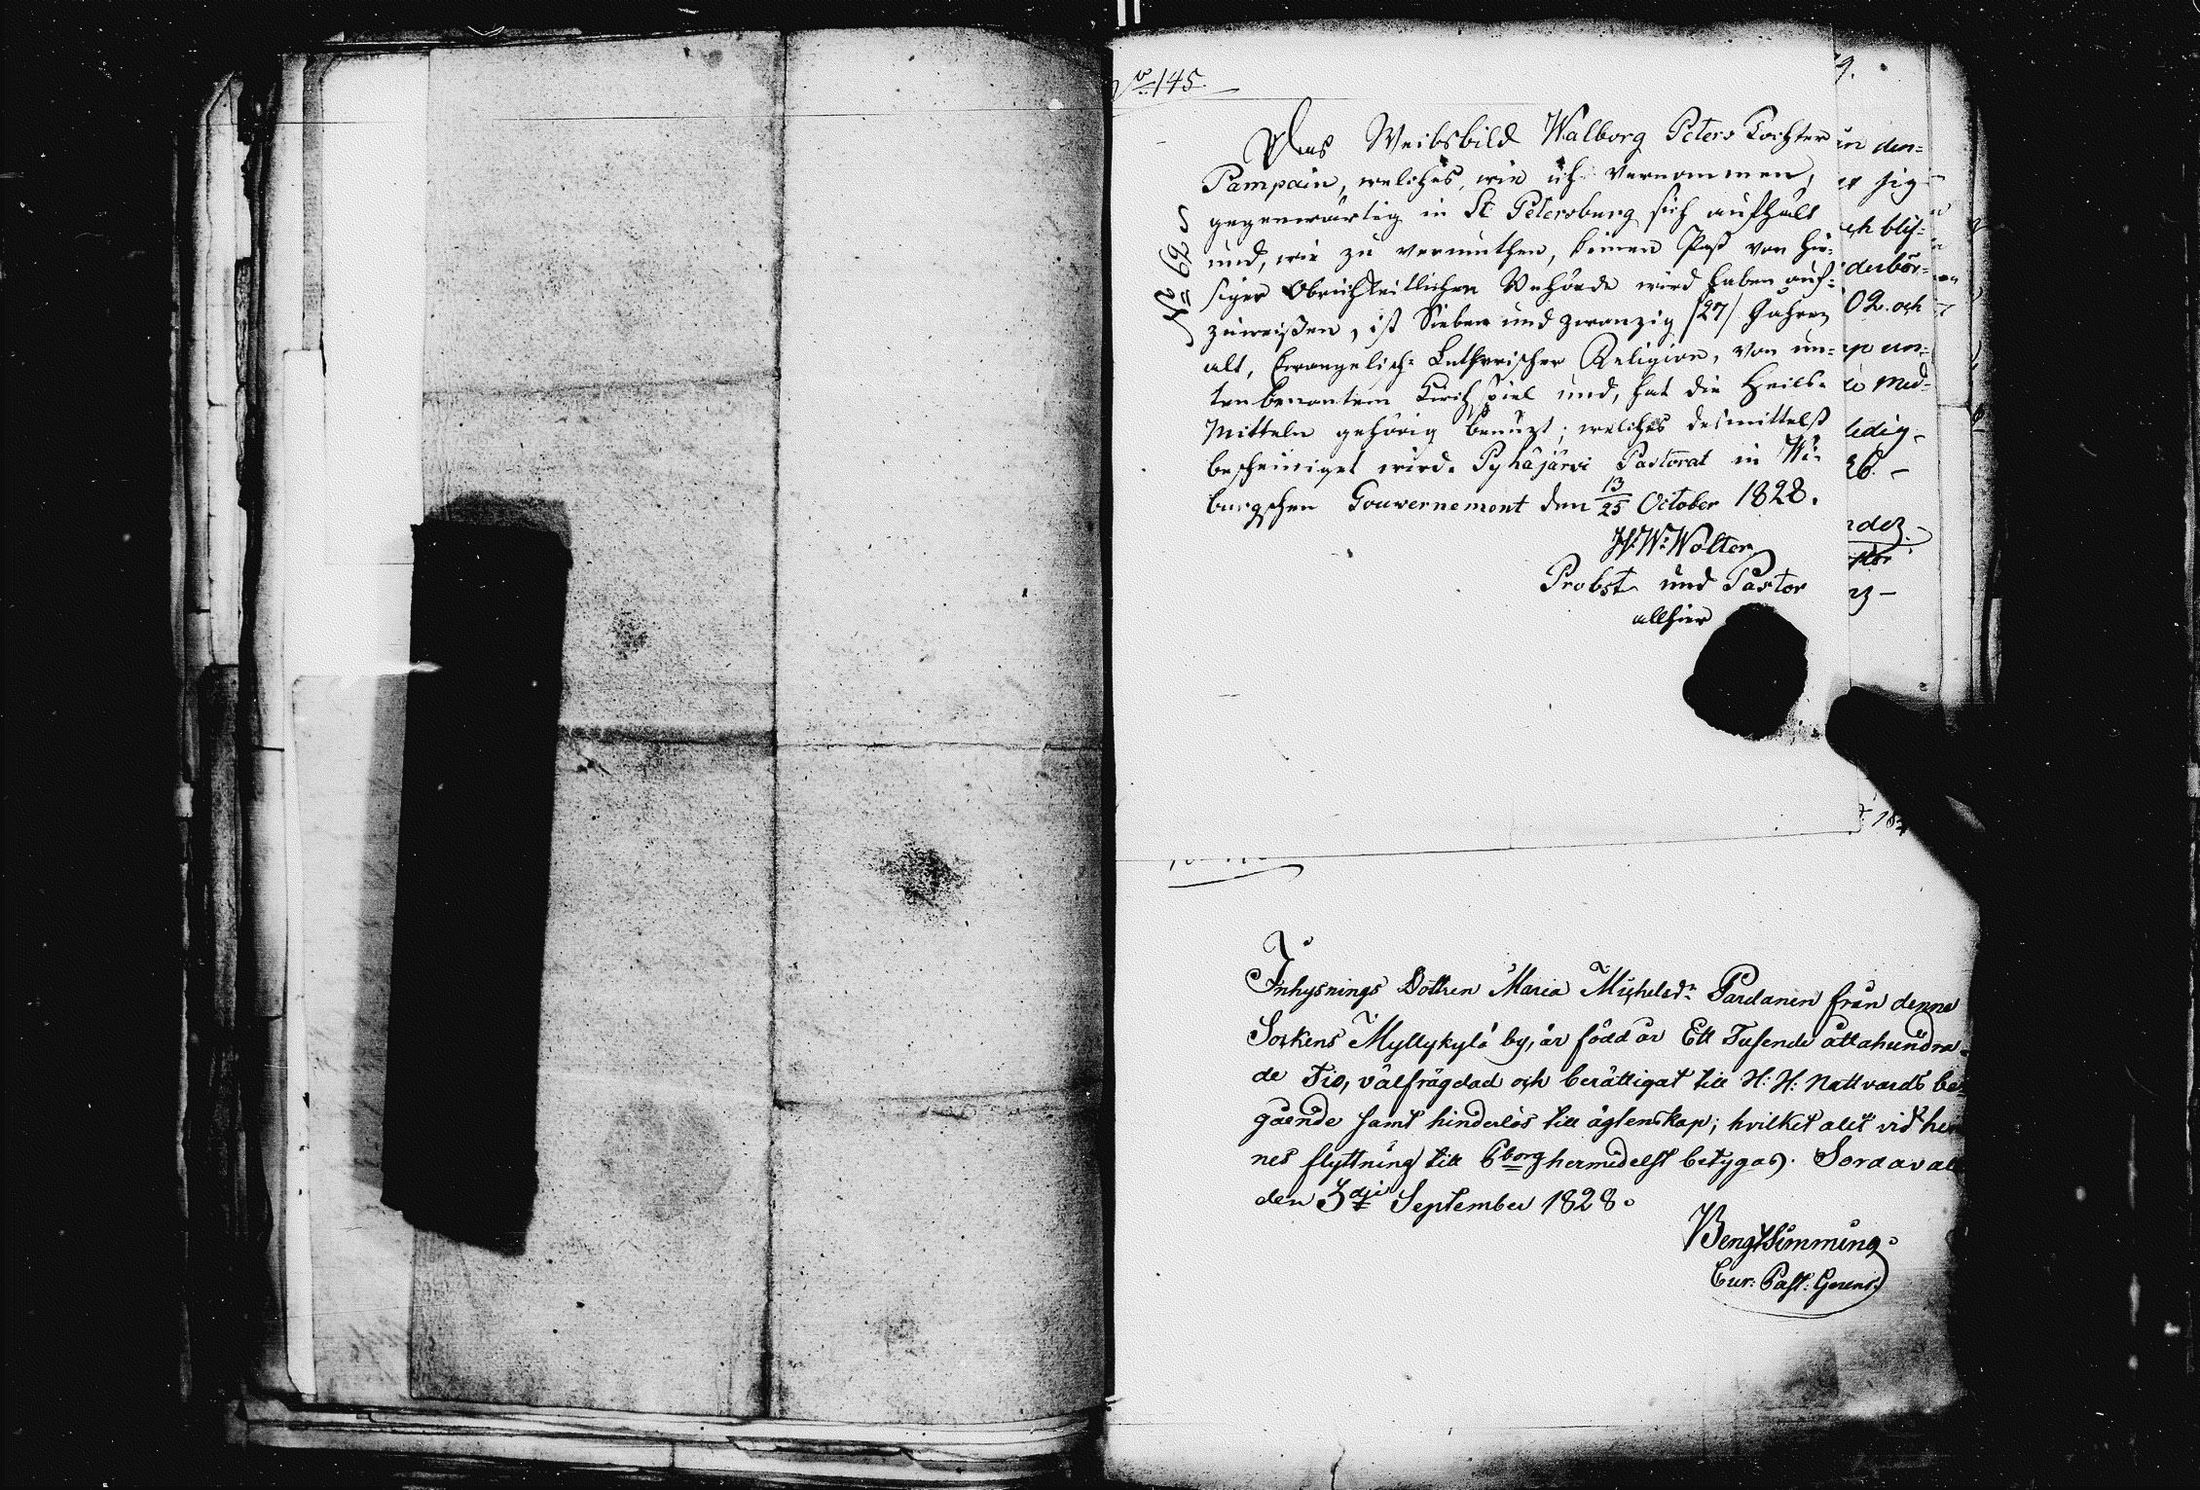 No 145.
No 62
Das Weibsbild Walborg Peters Tochter
Pampain, welches, wie ich vernommen,
gegenwärtig in St. Petersburg sich aufhält
und, wie zu vermuthen, keinen Paß von hie-
siger Obrichkeitlichen Behörde wird haben auf-
zuweißen, ist Sieben und zwanzig /27/ Jahren
alt, Evangelisch-Lutherischer Religion, von un-
tenbenantem Kirchspiel und, hat die Heils-
Mitteln gehörig benuzt; welches desmittelst
bescheiniget wird. Pyhäjärvi Pastorat in Wi-
burgschen Gouvernement den 13/25 October 1828.
Wolter
Probst und Pastor
allhier
9.
den=
sig
och blif=
derbör=
02. och
un=
med=
ledig
Inhysnings Dottren Maria Michelsdr Pardanen från denna
Sokens Myllykylä by, är född år Ett Tusende åttahundra-
de Tio, välfrägdad och berättigat till H: H: Nattvards be-
gående samt hinderlös till ägtenskap; hvilket alt vid hen
nes flyttning till Pborg hermedelst betygas. Sordavala
den 3die September 1828.
Bengt Simming.
Cur: Past: Gerens.